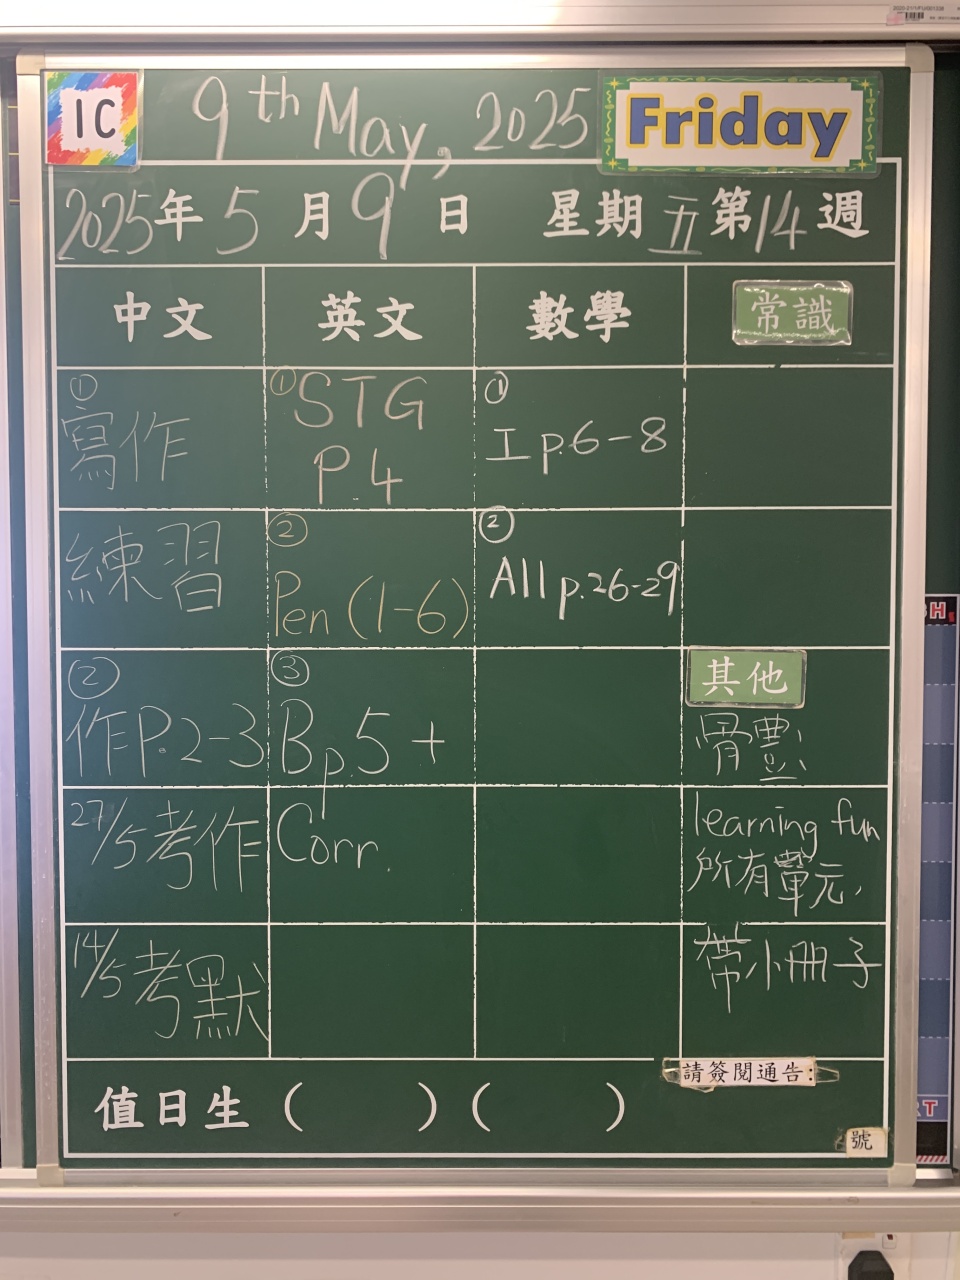 1C
9th May, 2025
Friday
2025年5月9日 星期五第14週
中文 英文 數學 常識
① ①STG ①
寫作 P.4 I p.6-8
② ②
練習 Pen (1-6) All p.26-29
② ③ 其他
作P.2-3 Bp.5 + 骨豊
27/5考作 Corr. learning fun
所有單元,
14/5考默 帶小冊子
請簽閱通告:
值日生 ( ) ( )
號